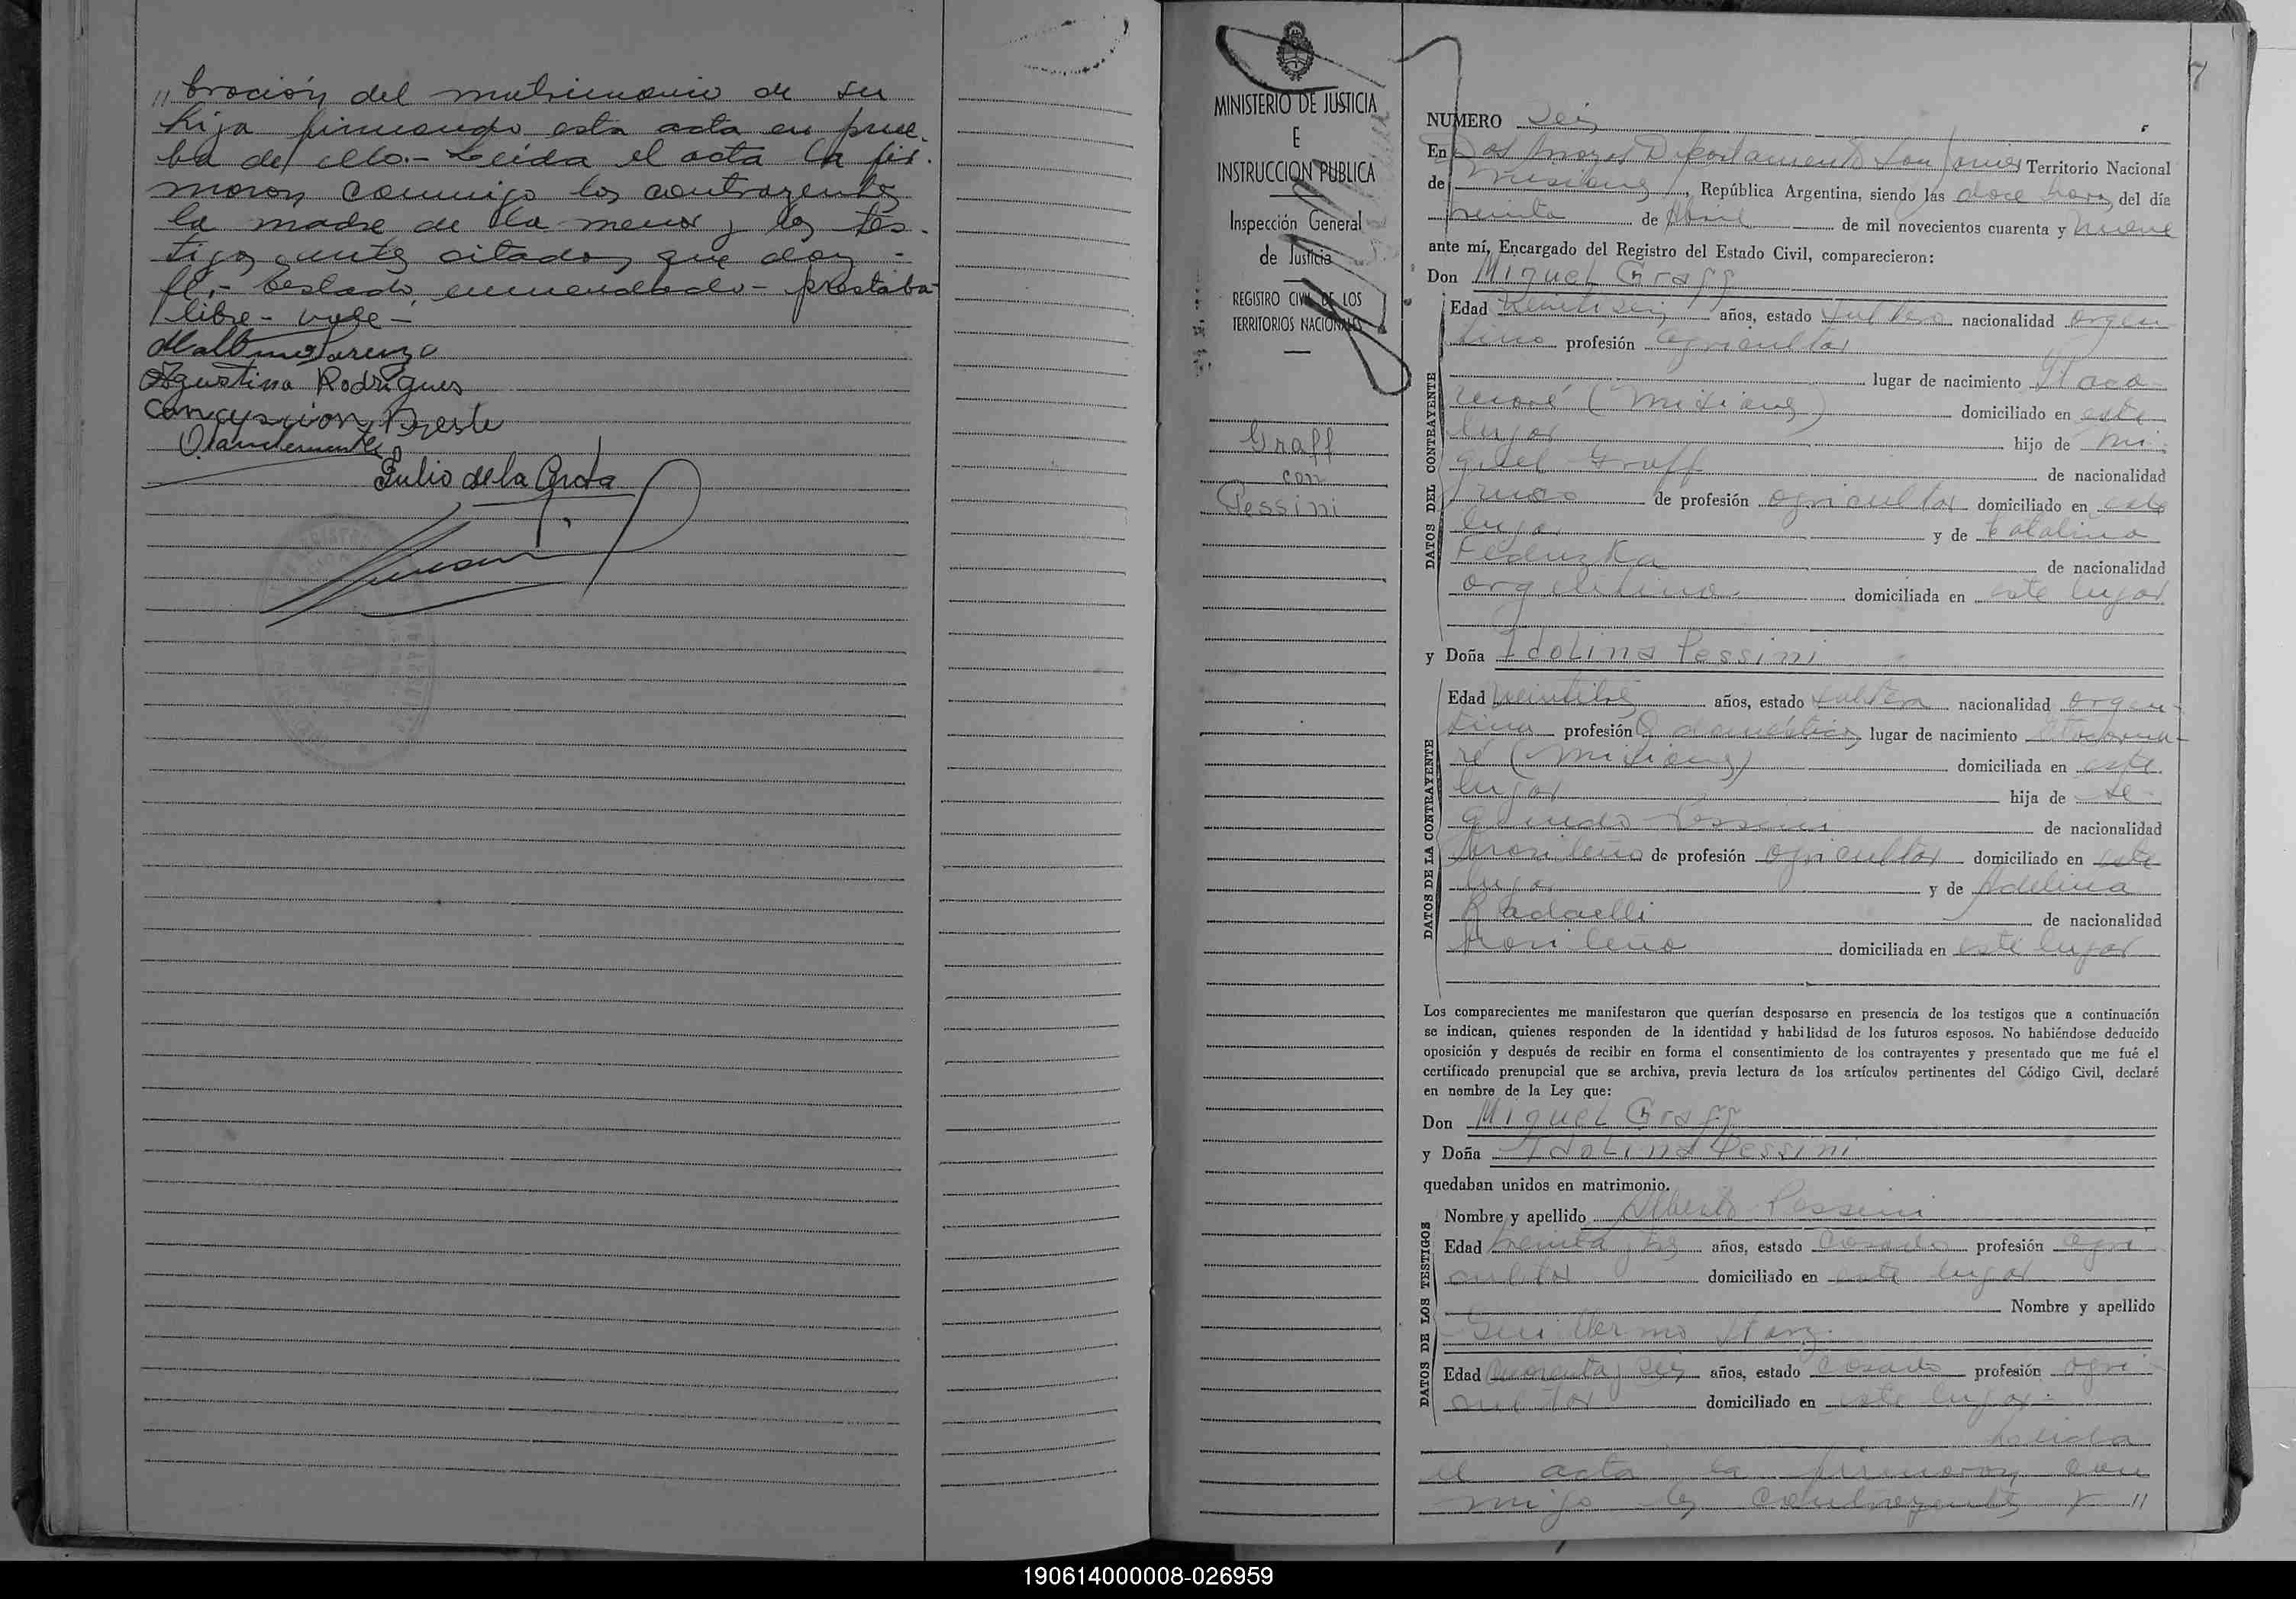 " bración del matrimonio de su
hija firmando esta acta en prue-
ba de ello.- Leída el acta la fir-
maron conmigo los contrayentes
la madre de la menor y los tes-
tigos antes citados que doy
fe.- Testado, enmendado - prestaba
libre - vale -
Agustina Rodrigues
Julio de la
MINISTERIO DE JUSTICIA
E
INSTRUCCION PUBLICA
Inspección General
de Justicia
REGISTRO CIVIL DE LOS
TERRITORIOS NACIONALES
Graff
con
Pessini
7
NUMERO Seis
En Dos Arroyos Departamento San Javier Territorio Nacional
de Misiones, República Argentina, siendo las doce horas del día
treinta de Abril de mil novecientos cuarenta y nueve
ante mí, Encargado del Registro del Estado Civil, comparecieron:
Don Miguel Graff
Edad veintiseis años, estado soltero nacionalidad argen-
tino profesión agricultor
lugar de nacimiento Itaca-
ruaré (Misiones) domiciliado en este
lugar hijo de Mi-
guel Graff de nacionalidad
ruso de profesión agricultor domiciliado en este
lugar y de Catalina
de nacionalidad
argentina domiciliada en este lugar
y Doña Idolina Pessini
Edad veintitres años, estado soltera nacionalidad argen-
tina profesión Q. domésticos lugar de nacimiento Itacarua-
ré (Misiones) domiciliada en este
lugar hija de Se-
gundo Pessini de nacionalidad
brasileño de profesión agricultor domiciliado en este
lugar y de Adelina
Radaelli de nacionalidad
brasileña domiciliada en este lugar
Los comparecientes me manifestaron que querían desposarse en presencia de los testigos que a continuación
se indican, quienes responden de la identidad y habilidad de los futuros esposos. No habiéndose deducido
oposición y después de recibir en forma el consentimiento de los contrayentes y presentado que me fué el
certificado prenupcial que se archiva, previa lectura de los artículos pertinentes del Código Civil, declaré
en nombre de la Ley que:
Don Miguel Graff
y Doña Idolina Pessini
quedaban unidos en matrimonio.
Nombre y apellido Alberto Pessini
Edad treinta y tres años, estado casado profesión agri-
cultor domiciliado en este lugar
Nombre y apellido
Guillermo
Edad cuarenta y seis años, estado casado profesión agri-
cultor domiciliado en este lugar.-
Leída
el acta la firmaron con-
migo los contrayentes y "
DATOS DEL CONTRAYENTE
DATOS DE LA CONTRAYENTE
DATOS DE LOS TESTIGOS
190614000008-026959